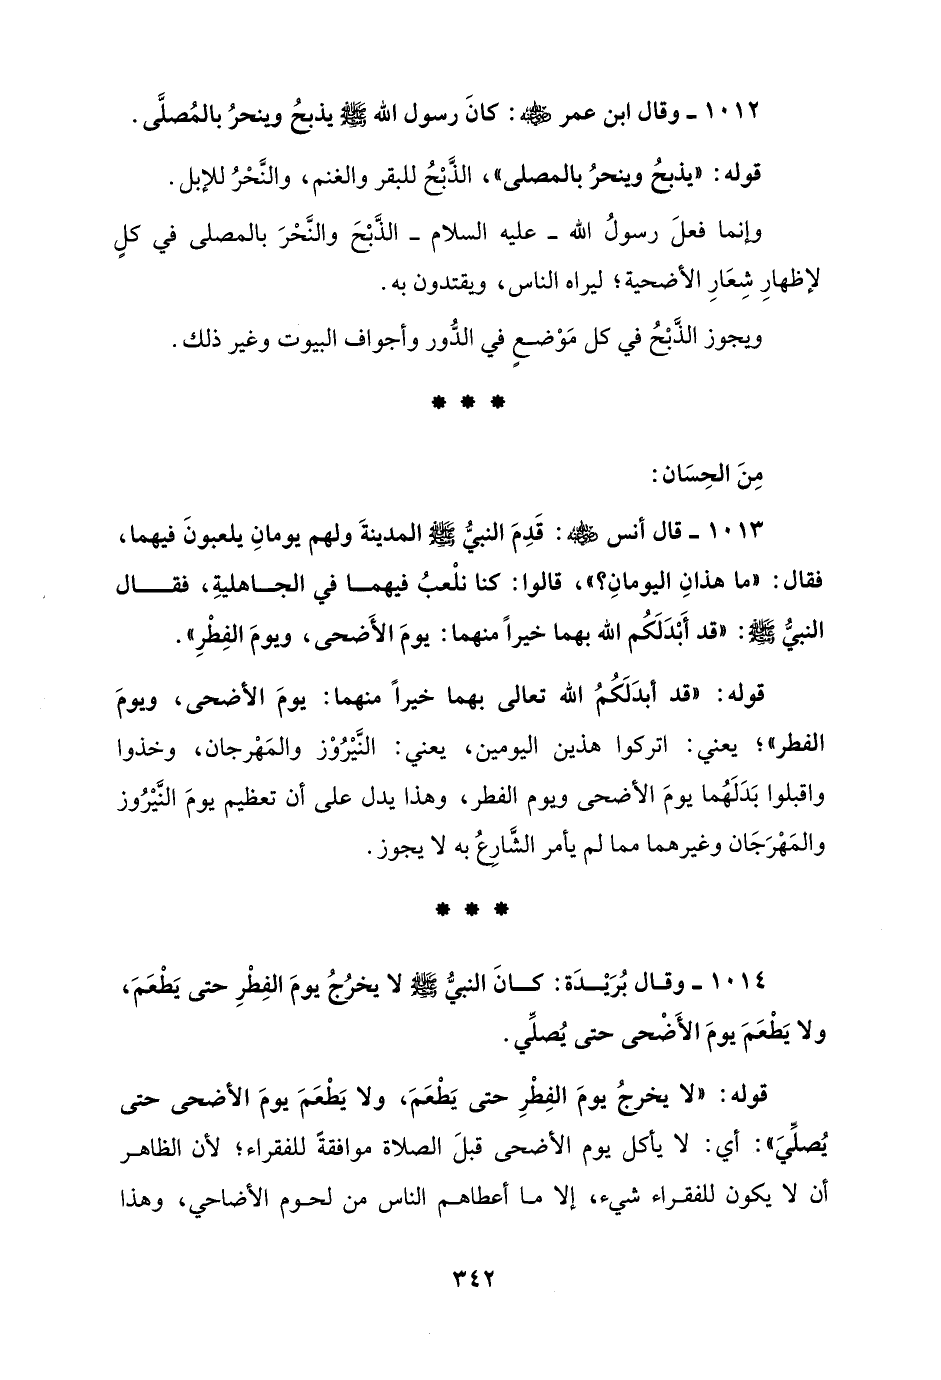 ١٠١٢ ـ وقال ابن عمر ﵁: كانَ رسول الله ﷺ يذبحُ وينحرُ بالمُصلَّى.
قوله: «يذبحُ وينحرُ بالمصلى»، الذَّبْحُ للبقر والغنم، والنَّحْرُ للإبل.
وإنما فعلَ رسولُ الله ـ عليه السلام ـ الذَّبْحَ والنَّحْرَ بالمصلى في كلٍ
لإظهارِ شِعَارِ الأضحية؛ ليراه الناس، ويقتدون به.
ويجوز الذَّبْحُ في كل مَوْضعٍ في الدُّور وأجواف البيوت وغير ذلك.
* * *
مِنَ الحِسَان:
١٠١٣ ـ قال أنس ﵁: قَدِمَ النبيُّ ﷺ المدينةَ ولهم يومانِ يلعبونَ فيهما،
فقال: «ما هذانِ اليومانِ؟»، قالوا: كنا نلْعبُ فيهما في الجاهليةِ، فقال
النبيُّ ﷺ: «قد أَبْدَلَكُم الله بهما خيراً منهما: يومَ الأَضحى، ويومَ الفِطْرِ».
قوله: «قد أبدَلَكُمُ الله تعالى بهما خيراً منهما: يومَ الأضحى، ويومَ
الفطر»؛ يعني: اتركوا هذين اليومين، يعني: النَّيْرُوْز والمَهْرجان، وخذوا
واقبلوا بَدَلَهُما يومَ الأضحى ويوم الفطر، وهذا يدل على أن تعظيم يومَ النَّيْرُوز
والمَهْرَجَان وغيرهما مما لم يأمر الشَّارِعُ به لا يجوز.
* * *
١٠١٤ ـ وقال بُرَيْدَة: كانَ النبيُّ ﷺ لا يخرُجُ يومَ الفِطْرِ حتى يَطْعَمَ،
ولا يَطْعَمَ يومَ الأَضْحى حتى يُصلِّي.
قوله: «لا يخرجُ يومَ الفِطْرِ حتى يَطْعَمَ، ولا يَطْعَمَ يومَ الأضحى حتى
يُصلِّيَ»: أي: لا يأكل يوم الأضحى قبلَ الصلاة موافقةً للفقراء؛ لأن الظاهر
أن لا يكون للفقراء شيء، إلا ما أعطاهم الناس من لحوم الأضاحي، وهذا
٣٤٢